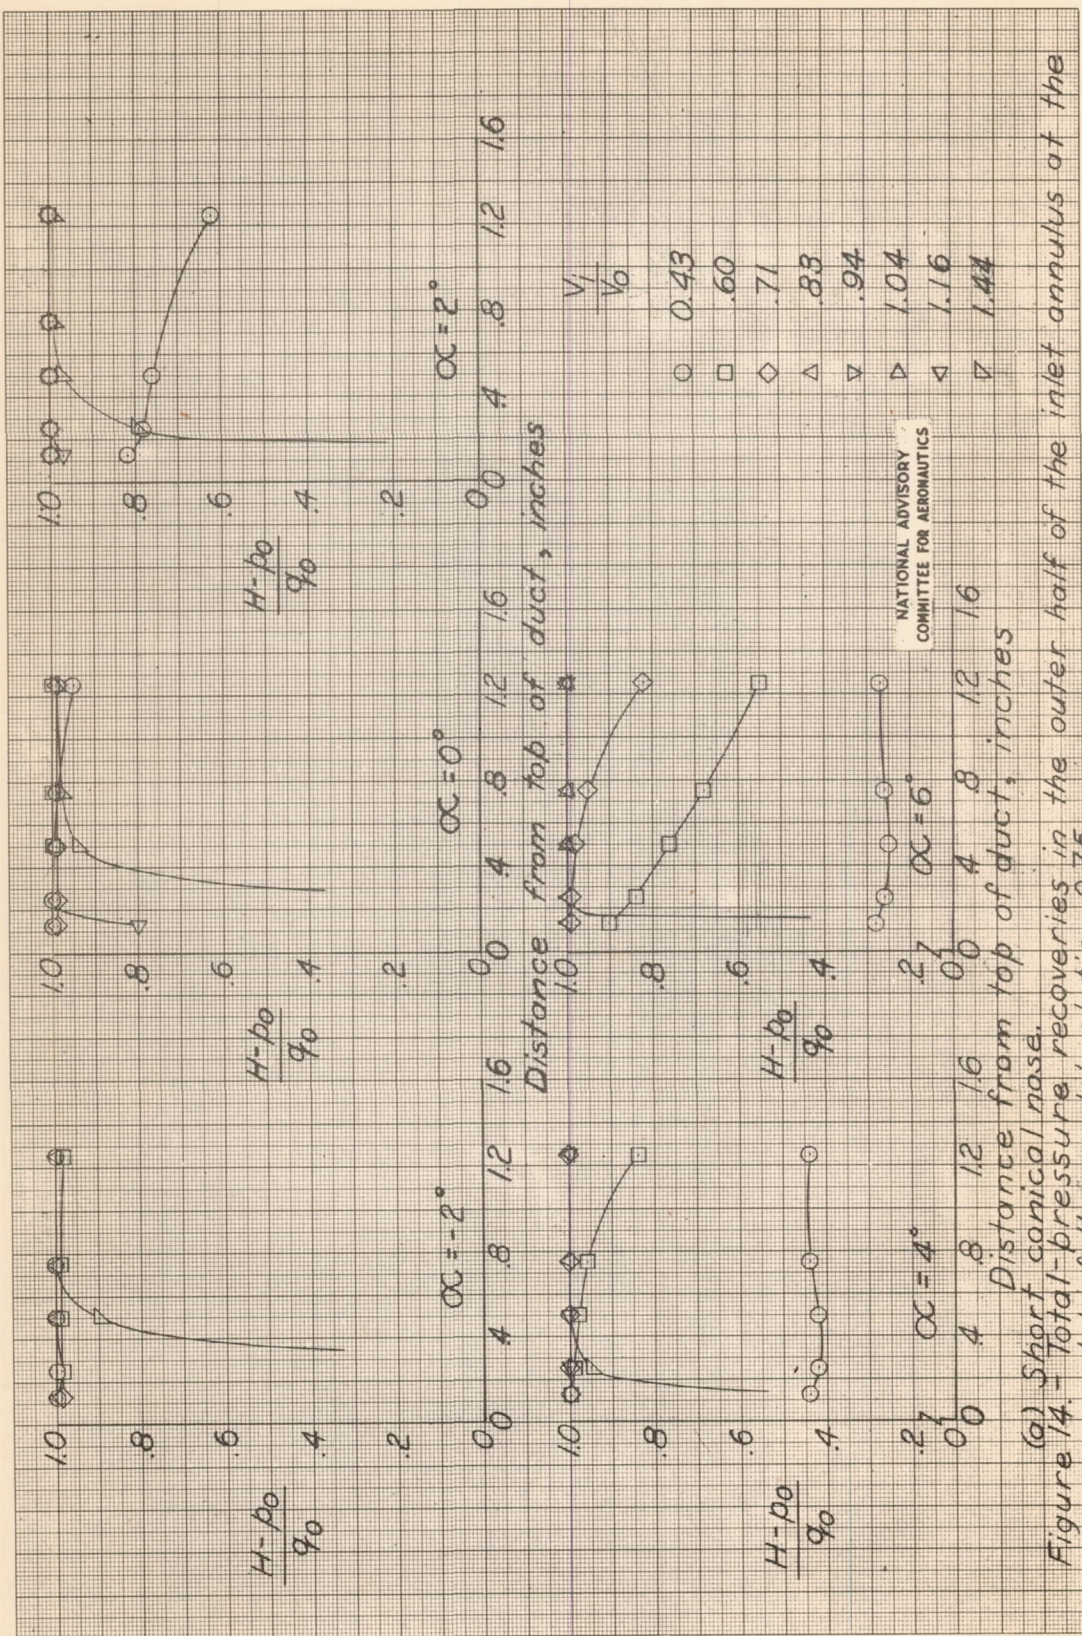 H-p0
q0
1.0
.8
.6
.4
.2
0
0 .4 .8 1.2 1.6
α = -2°
H-p0
q0
1.0
.8
.6
.4
.2
0
0 .4 .8 1.2 1.6
α = 0°
H-p0
q0
1.0
.8
.6
.4
.2
0
0 .4 .8 1.2 1.6
α = 2°
Distance from top of duct, inches
H-p0
q0
1.0
.8
.6
.4
.2
0
0 .4 .8 1.2 1.6
α = 4°
H-p0
q0
1.0
.8
.6
.4
.2
0
0 .4 .8 1.2 1.6
α = 6°
Vi
V0
○ 0.43
□ .60
◇ .71
.83
.94
1.04
1.16
1.44
NATIONAL ADVISORY
COMMITTEE FOR AERONAUTICS
Distance from top of duct, inches
(a) Short conical nose.
Figure 14.- Total-pressure recoveries in the outer half of the inlet annulus at the